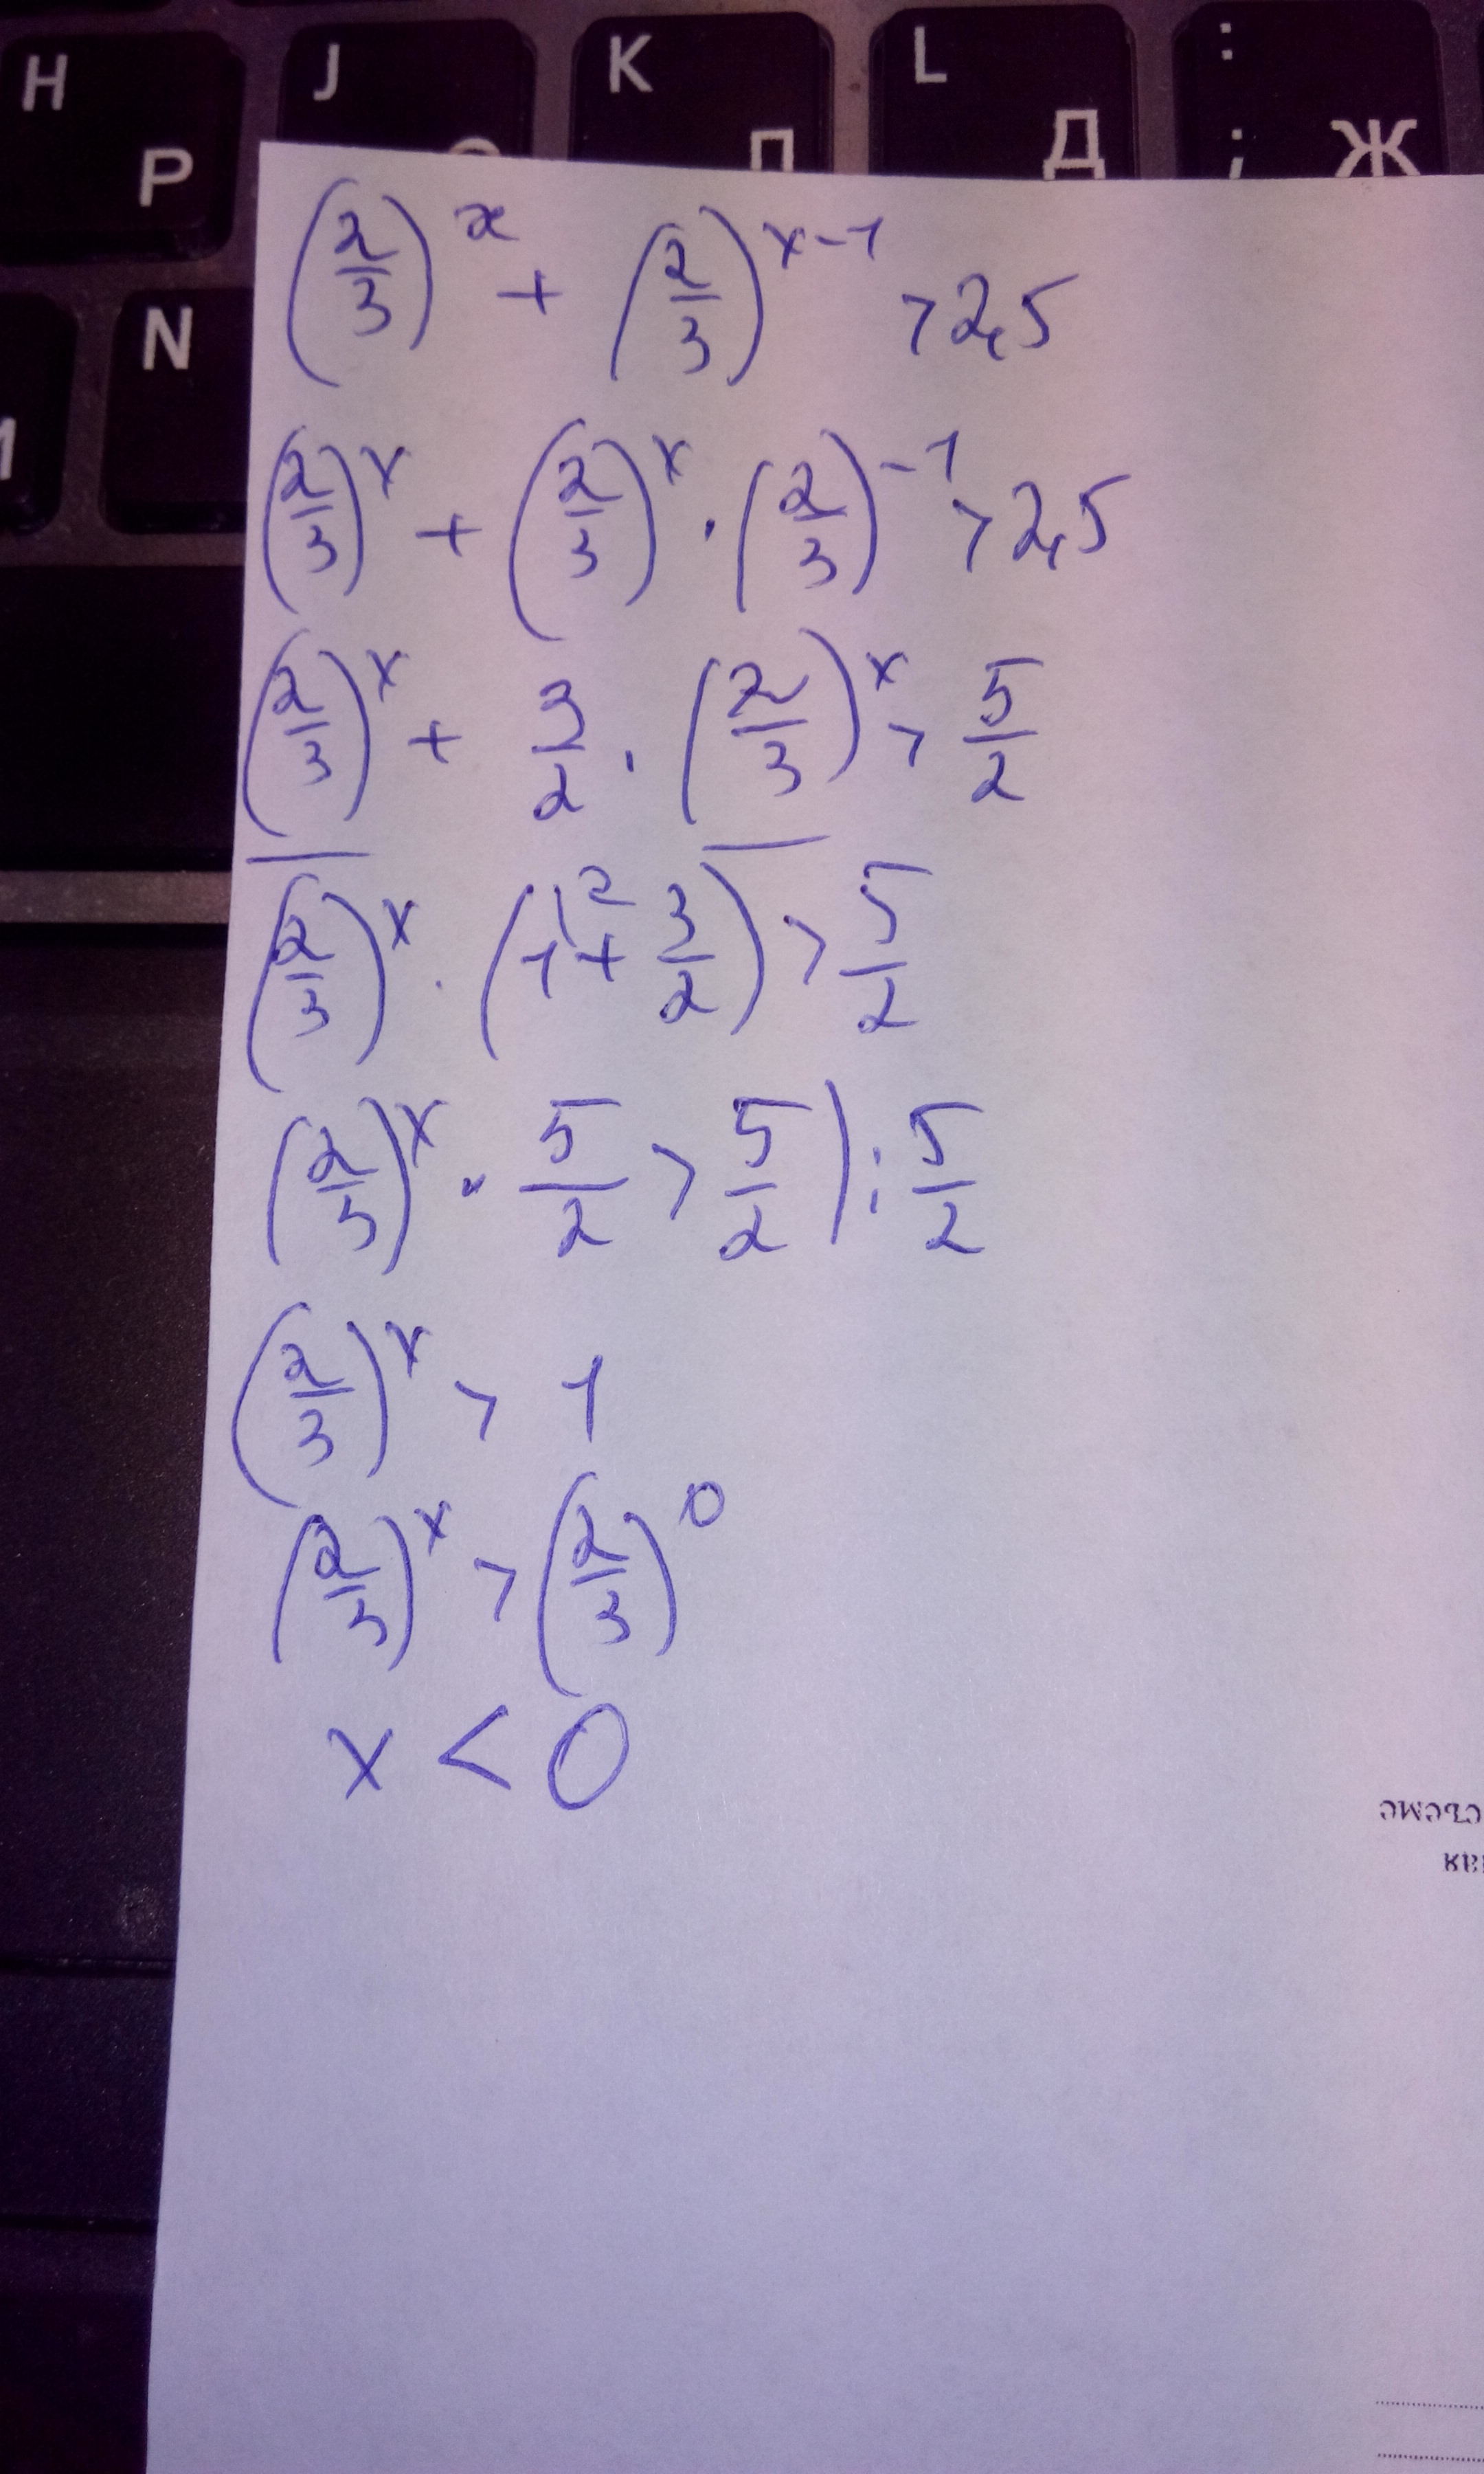 H J K L :
Р П Д ; Ж
N
(2/3)^x + (2/3)^(x-1) > 2,5
(2/3)^x + (2/3)^x · (2/3)^(-1) > 2,5
(2/3)^x + 3/2 · (2/3)^x > 5/2
(2/3)^x · (1^(\2) + 3/2) > 5/2
(2/3)^x · 5/2 > 5/2 | : 5/2
(2/3)^x > 1
(2/3)^x > (2/3)^0
x < 0